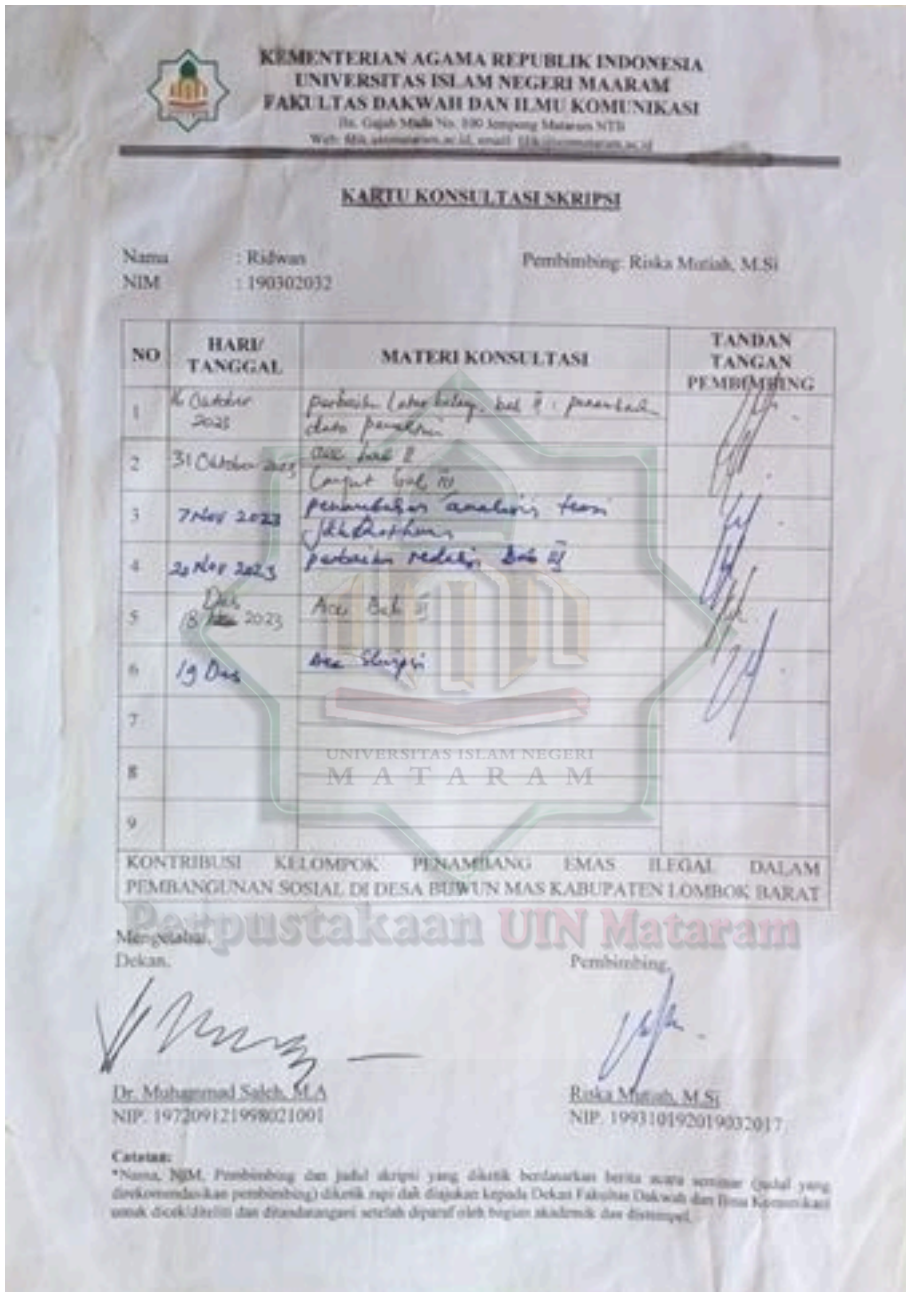 KEMENTERIAN AGAMA REPUBLIK INDONESIA
UNIVERSITAS ISLAM NEGERI MAARAM
FAKULTAS DAKWAH DAN ILMU KOMUNIKASI
Jln. Gajah Mada No. 100 Jempong Mataram NTB
Web: fdik.uinmataram.ac.id, email: fdik@uinmataram.ac.id
KARTU KONSULTASI SKRIPSI
Nama : Ridwan Pembimbing: Riska Mutiah, M.Si
NIM : 190302032
NO HARI/ TANGGAL MATERI KONSULTASI TANDAN TANGAN PEMBIMBING
1 16 Oktober 2023 bab II
2 31 Oktober 2023 acc bab II
Lanjut bab III
3 7 Nov 2023 penambahan analisis teori
4 20 Nov 2023 perbaikan redaksi Bab III
5 18 Des 2023 Acc Bab III
6 19 Des Acc Skripsi
7
8
9
UNIVERSITAS ISLAM NEGERI
MATARAM
KONTRIBUSI KELOMPOK PENAMBANG EMAS ILEGAL DALAM
PEMBANGUNAN SOSIAL DI DESA BUWUN MAS KABUPATEN LOMBOK BARAT
Perpustakaan UIN Mataram
Mengetahui,
Dekan, Pembimbing,
Dr. Muhammad Saleh, M.A Riska Mutiah, M.Si
NIP. 197209121998021001 NIP. 199310192019032017
Catatan:
*Nama, NIM, Pembimbing dan judul skripsi yang diketik berdasarkan berita acara seminar (judul yang
direkomendasikan pembimbing) diketik rapi dah diajukan kepada Dekan Fakultas Dakwah dan Ilmu Komunikasi
untuk dicek/diteliti dan ditandatangani setelah diparaf oleh bagian akademik dan distempel.